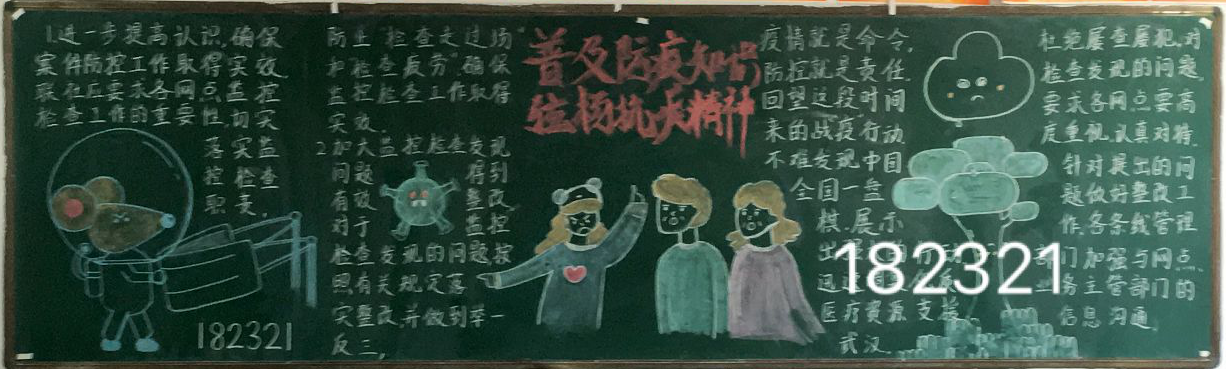 1.进一步提高认识,确保
案件防控工作取得实效
联社应要求各网点监控
检查工作的重要性,切实
落实监
控检查
职责。
182321
防止“检查走过场”
和“检查疲劳”,确保
监控检查工作取得
实效。
2.加大监控检查发现
问题 得到
有效 整改
对于 监控
检查发现的问题按
照有关规定落
实整改,并做到举一
反三,
普及防疫知识
弘扬抗疫精神
疫情就是命令,
防控就是责任
回望这段时间
来的战疫行动
不难发现中国
全国一盘
棋.展示
出
迅
医疗资源支援
武汉
182321
杜绝屡查屡犯,对
检查发现的问题,
要求各网点要高
度重视,认真对待
针对提出的问
题做好整改工
作,各条线管理
部门加强与网点
务主管部门的
信息沟通,